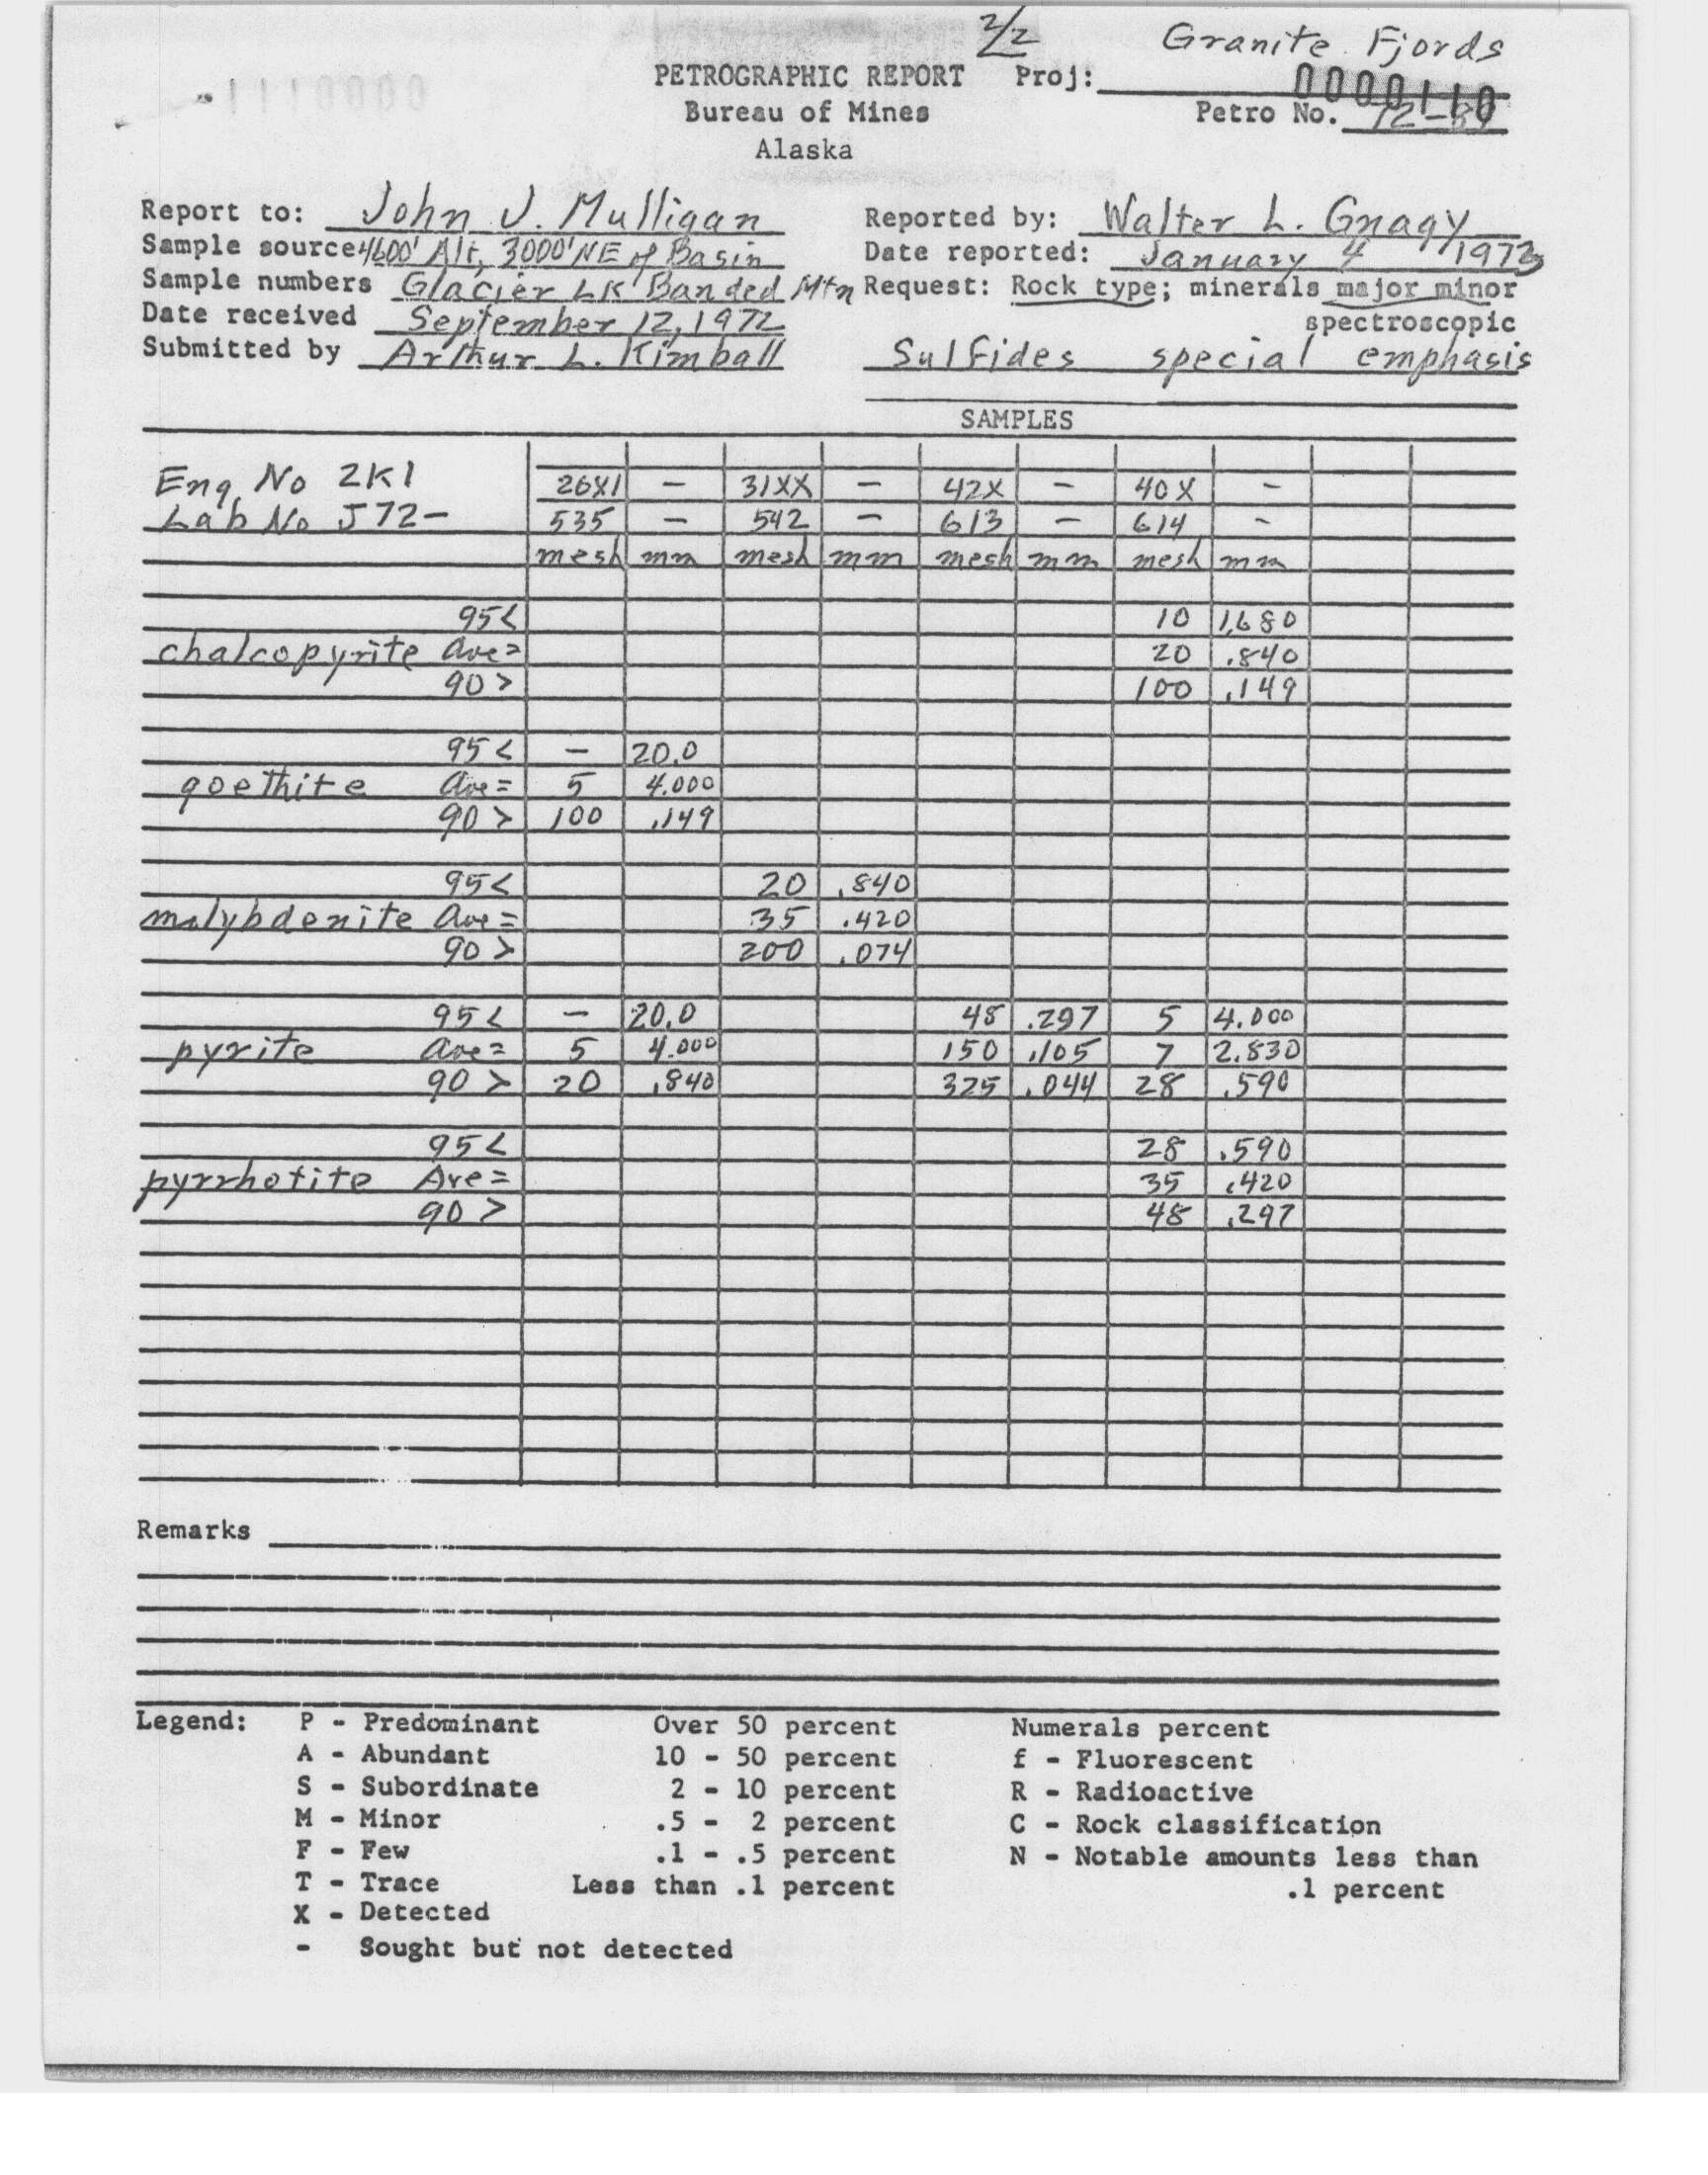 2/2 Granite Fjords
PETROGRAPHIC REPORT Proj:
0000110
Bureau of Mines Petro No. 72-
Alaska
Report to: John J. Mulligan Reported by: Walter L. Gnagy
Sample source 4600' Alt, 3000' NE of Basin Date reported: January 4 1973
Sample numbers Glacier LK Banded Mtn Request: Rock type; minerals major minor
Date received September 12, 1972 spectroscopic
Submitted by Arthur L. Kimball Sulfides special emphasis
SAMPLES
Eng. No 2K1 26X1 - 31XX - 42X - 40X -
Lab No J72- 535 - 542 - 613 - 614 -
mesh mm mesh mm mesh mm mesh mm
95< 10 1.680
chalcopyrite Ave= 20 .840
90> 100 .149
95< - 20.0
goethite Ave= 5 4.000
90> 100 .149
95< 20 .840
molybdenite Ave= 35 .420
90> 200 .074
95< - 20.0 48 .297 5 4.000
pyrite Ave= 5 4.000 150 .105 7 2.830
90> 20 .840 325 .044 28 .590
95< 28 .590
pyrrhotite Ave= 35 .420
90> 48 .297
Remarks
Legend: P - Predominant Over 50 percent Numerals percent
A - Abundant 10 - 50 percent f - Fluorescent
S - Subordinate 2 - 10 percent R - Radioactive
M - Minor .5 - 2 percent C - Rock classification
F - Few .1 - .5 percent N - Notable amounts less than
T - Trace Less than .1 percent .1 percent
X - Detected
- Sought but not detected